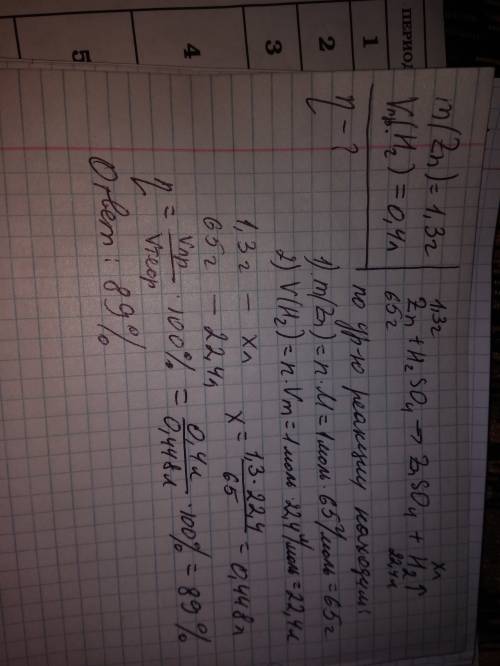 ПЕРИОД
1
2
3
4
5
m(Zn) = 1,3г
Vпр.(H₂) = 0,4л
η - ?
1,3г xл
Zn + H₂SO₄ → ZnSO₄ + H₂↑
65г 22,4л
по ур-ю реакции находим:
1) m(Zn) = n · M = 1 моль · 65 г/моль = 65г
2) V(H₂) = n · Vm = 1 моль · 22,4 л/моль = 22,4л
1,3г - xл x = 1,3 · 22,4 / 65 = 0,448л
65г - 22,4л
η = Vпр / Vтеор · 100% = 0,4л / 0,448л · 100% = 89%
Ответ: 89%